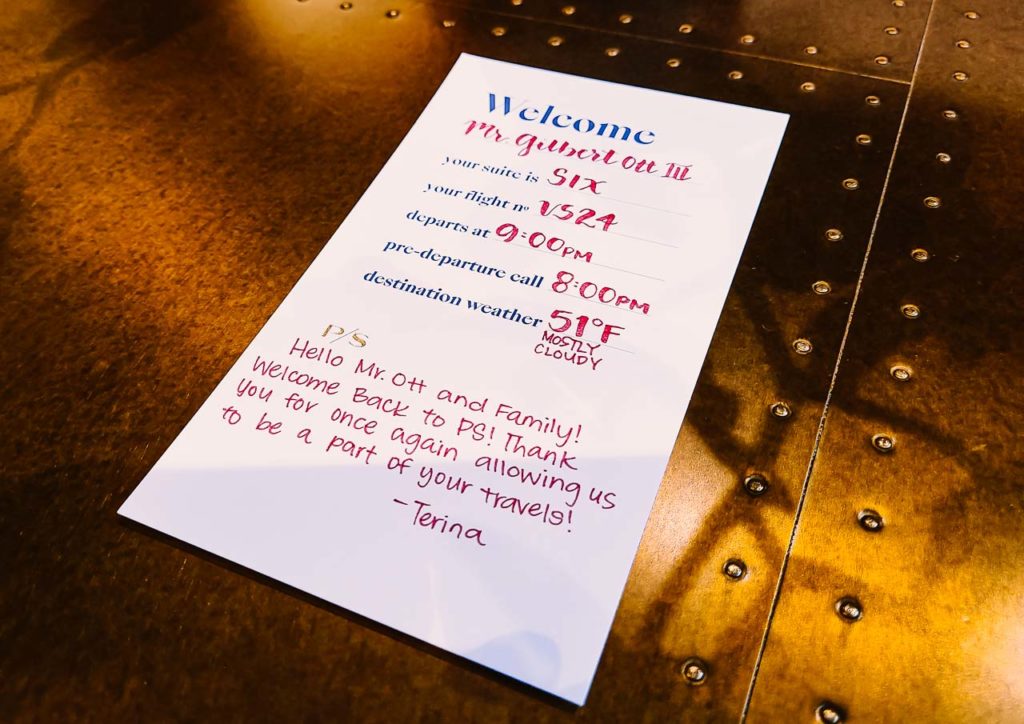 Welcome
Mr. Gilbert Ott III
your suite is SIX
your flight nº VS24
departs at 9:00PM
pre-departure call 8:00PM
destination weather 51°F
MOSTLY
CLOUDY
P/S
Hello Mr. Ott and Family!
Welcome Back to PS! Thank
you for once again allowing us
to be a part of your travels!
-Terina